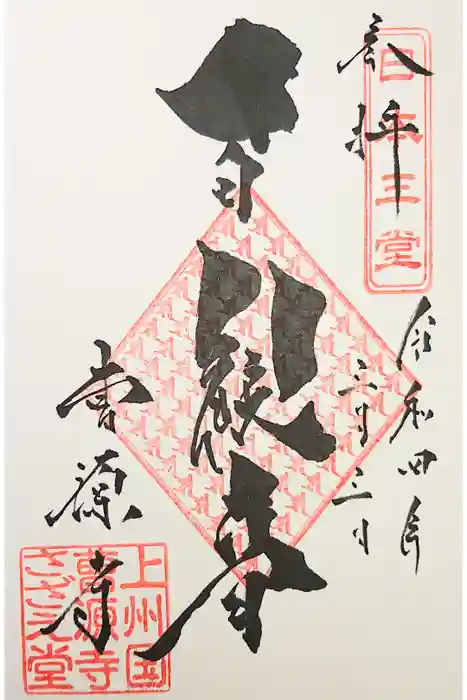 奉拝
日本三堂
令和四年
三月三日
観音
曹源寺
上州国
曹源寺
さざえ堂